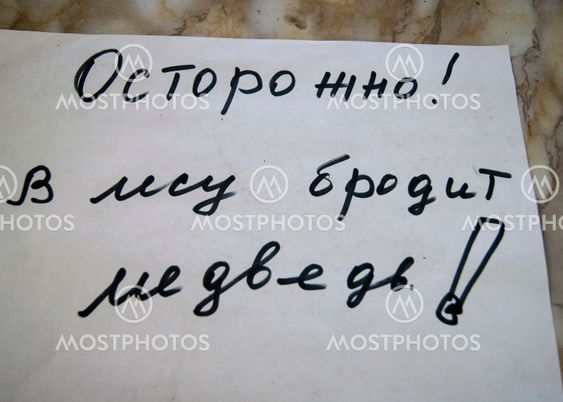 Осторожно!
В лесу бродит
медведь!
MOSTPHOTOS
MOSTPHOTOS
MOSTPHOTOS
MOSTPHOTOS
MOSTPHOTOS
MOSTPHOTOS
MOSTPHOTOS